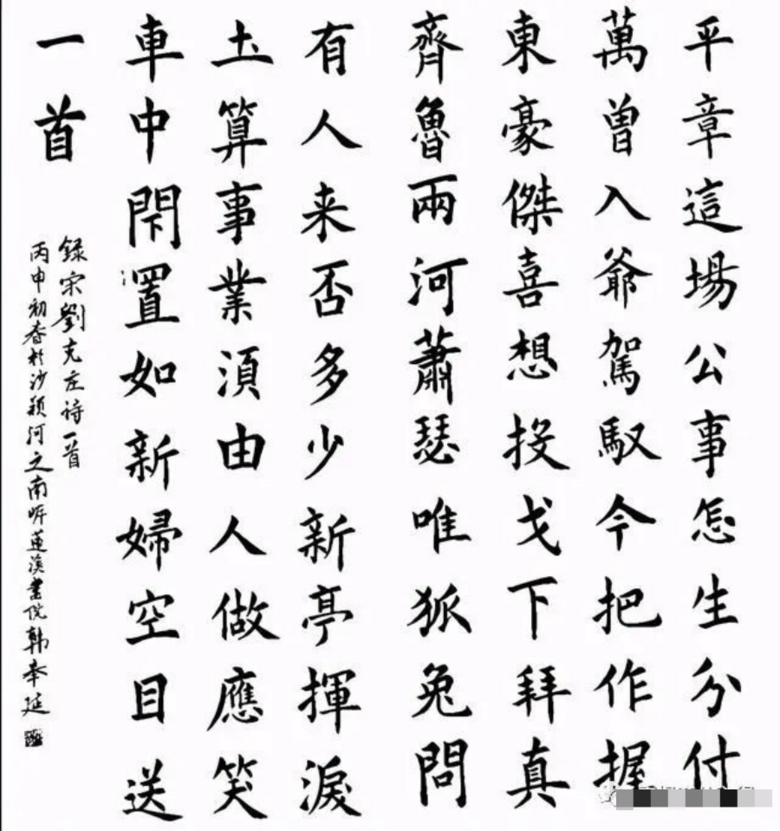 平章這場公事怎生分付
萬曾入爺駕馭今把作握
東豪傑喜想投戈下拜真
齊魯兩河蕭瑟唯狐兔問
有人来否多少新亭揮淚
圡算事業須由人做應笑
車中閇置如新婦空目送
一首
録宋劉克庄诗一首
丙申初春於沙颍河之南蓮溪書院韩奉延